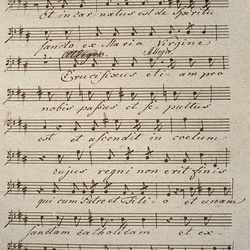 Et incarnatus est de Spiritu
sancto ex Maria Virgine
Crucifixus etiam pro
nobis passus et sepultus
est et ascendit in coelum
cujus regni non erit finis
qui cum Patre et Filio et unam
sanctam catholicam et ex-